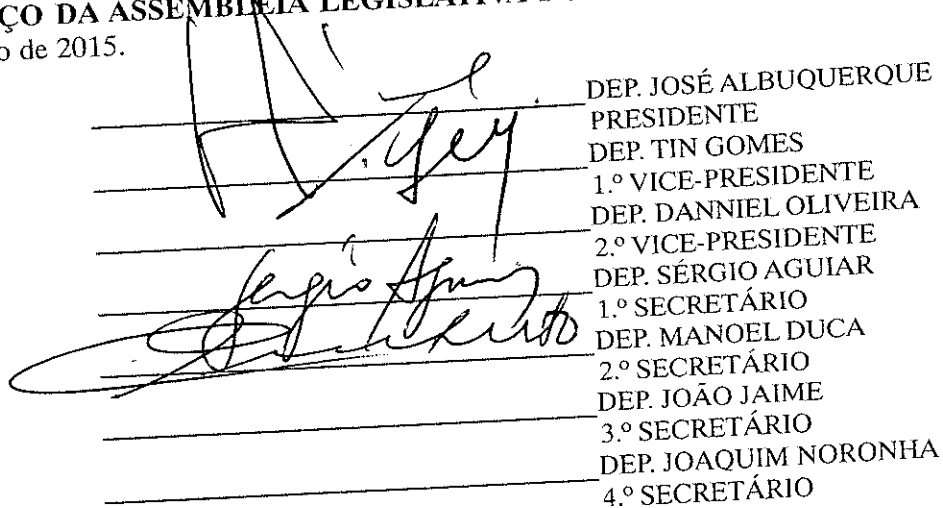 ÇO DA ASSEMBLEIA LEGISLATIVA
o de 2015.
DEP. JOSÉ ALBUQUERQUE
PRESIDENTE
DEP. TIN GOMES
1.º VICE-PRESIDENTE
DEP. DANNIEL OLIVEIRA
2.º VICE-PRESIDENTE
Sergio Aguiar
DEP. SÉRGIO AGUIAR
1.º SECRETÁRIO
DEP. MANOEL DUCA
2.º SECRETÁRIO
DEP. JOÃO JAIME
3.º SECRETÁRIO
DEP. JOAQUIM NORONHA
4.º SECRETÁRIO